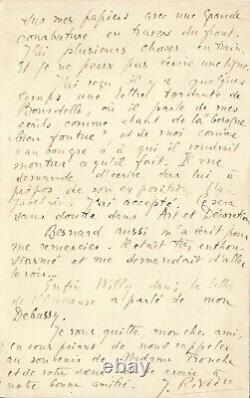 sur mes papiers avec une grande
courbature en travers du front.
J'ai plusieurs choses en train,
et je ne peux pas écrire une ligne.
J'ai reçu il y a quelques
temps une lettre tordante de
Bourdelle, où il parle de mes
écrits comme étant de la
et de moi comme
un bougre à qui il voudrait
montrer ce qu'il fait. Il me
demande d'écrire sur lui à
propos de son exposition
J'ai accepté. Ce sera
sans doute dans Art et Décoration
Besnard aussi m'a écrit pour
me remercier. Il était très enthou-
siasmé et me demandait d'aller
le voir.
Enfin Willy dans la lettre
de l'Ouvreuse a parlé de mon
Debussy.
Je vous quitte, mon cher ami
en vous priant de nous rappeler
au souvenir de Madame
et de votre soeur et de croire à
notre bonne amitié. J. Rivière
© 122dd.fr